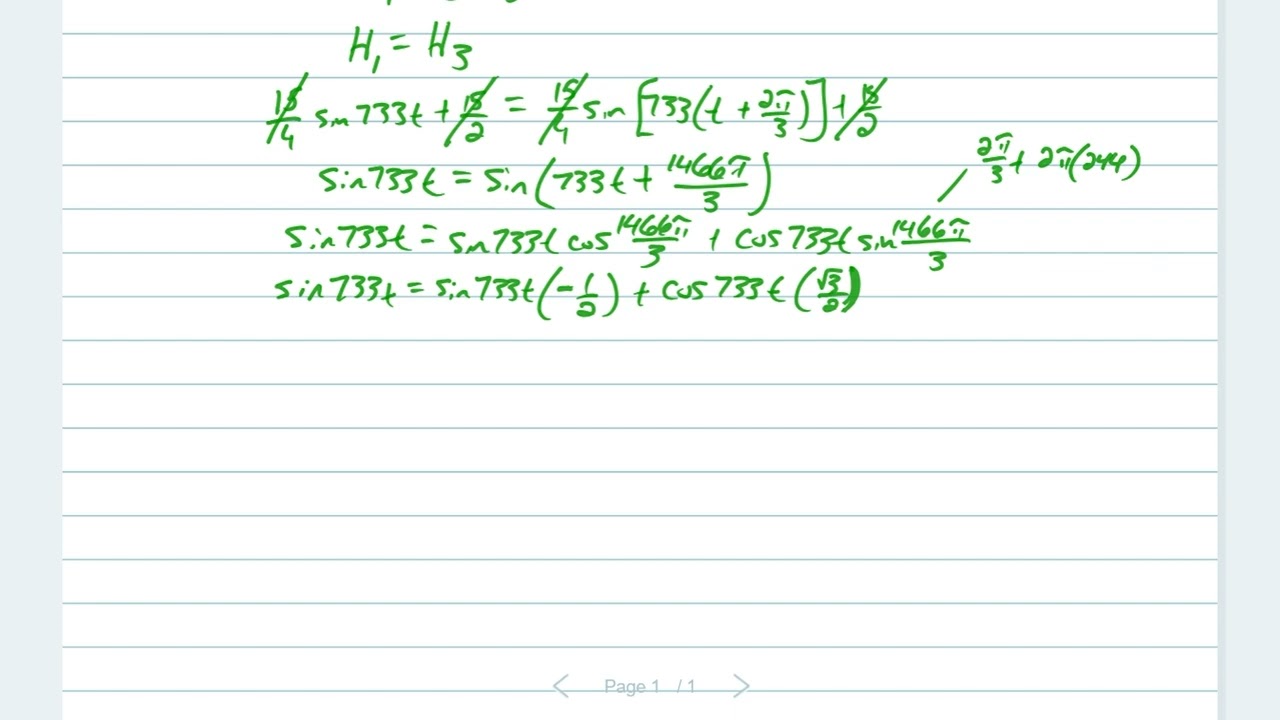 H₁ = H₃
15/4 sin 733t + 15/2 = 15/4 sin [733(t + 2π/3)] + 15/2
2π/3 + 2π(244)
sin 733t = sin (733t + 1466π/3)
sin 733t = sin 733t cos 1466π/3 + cos 733t sin 1466π/3
sin 733t = sin 733t (-1/2) + cos 733t (√3/2)
Page 1 / 1